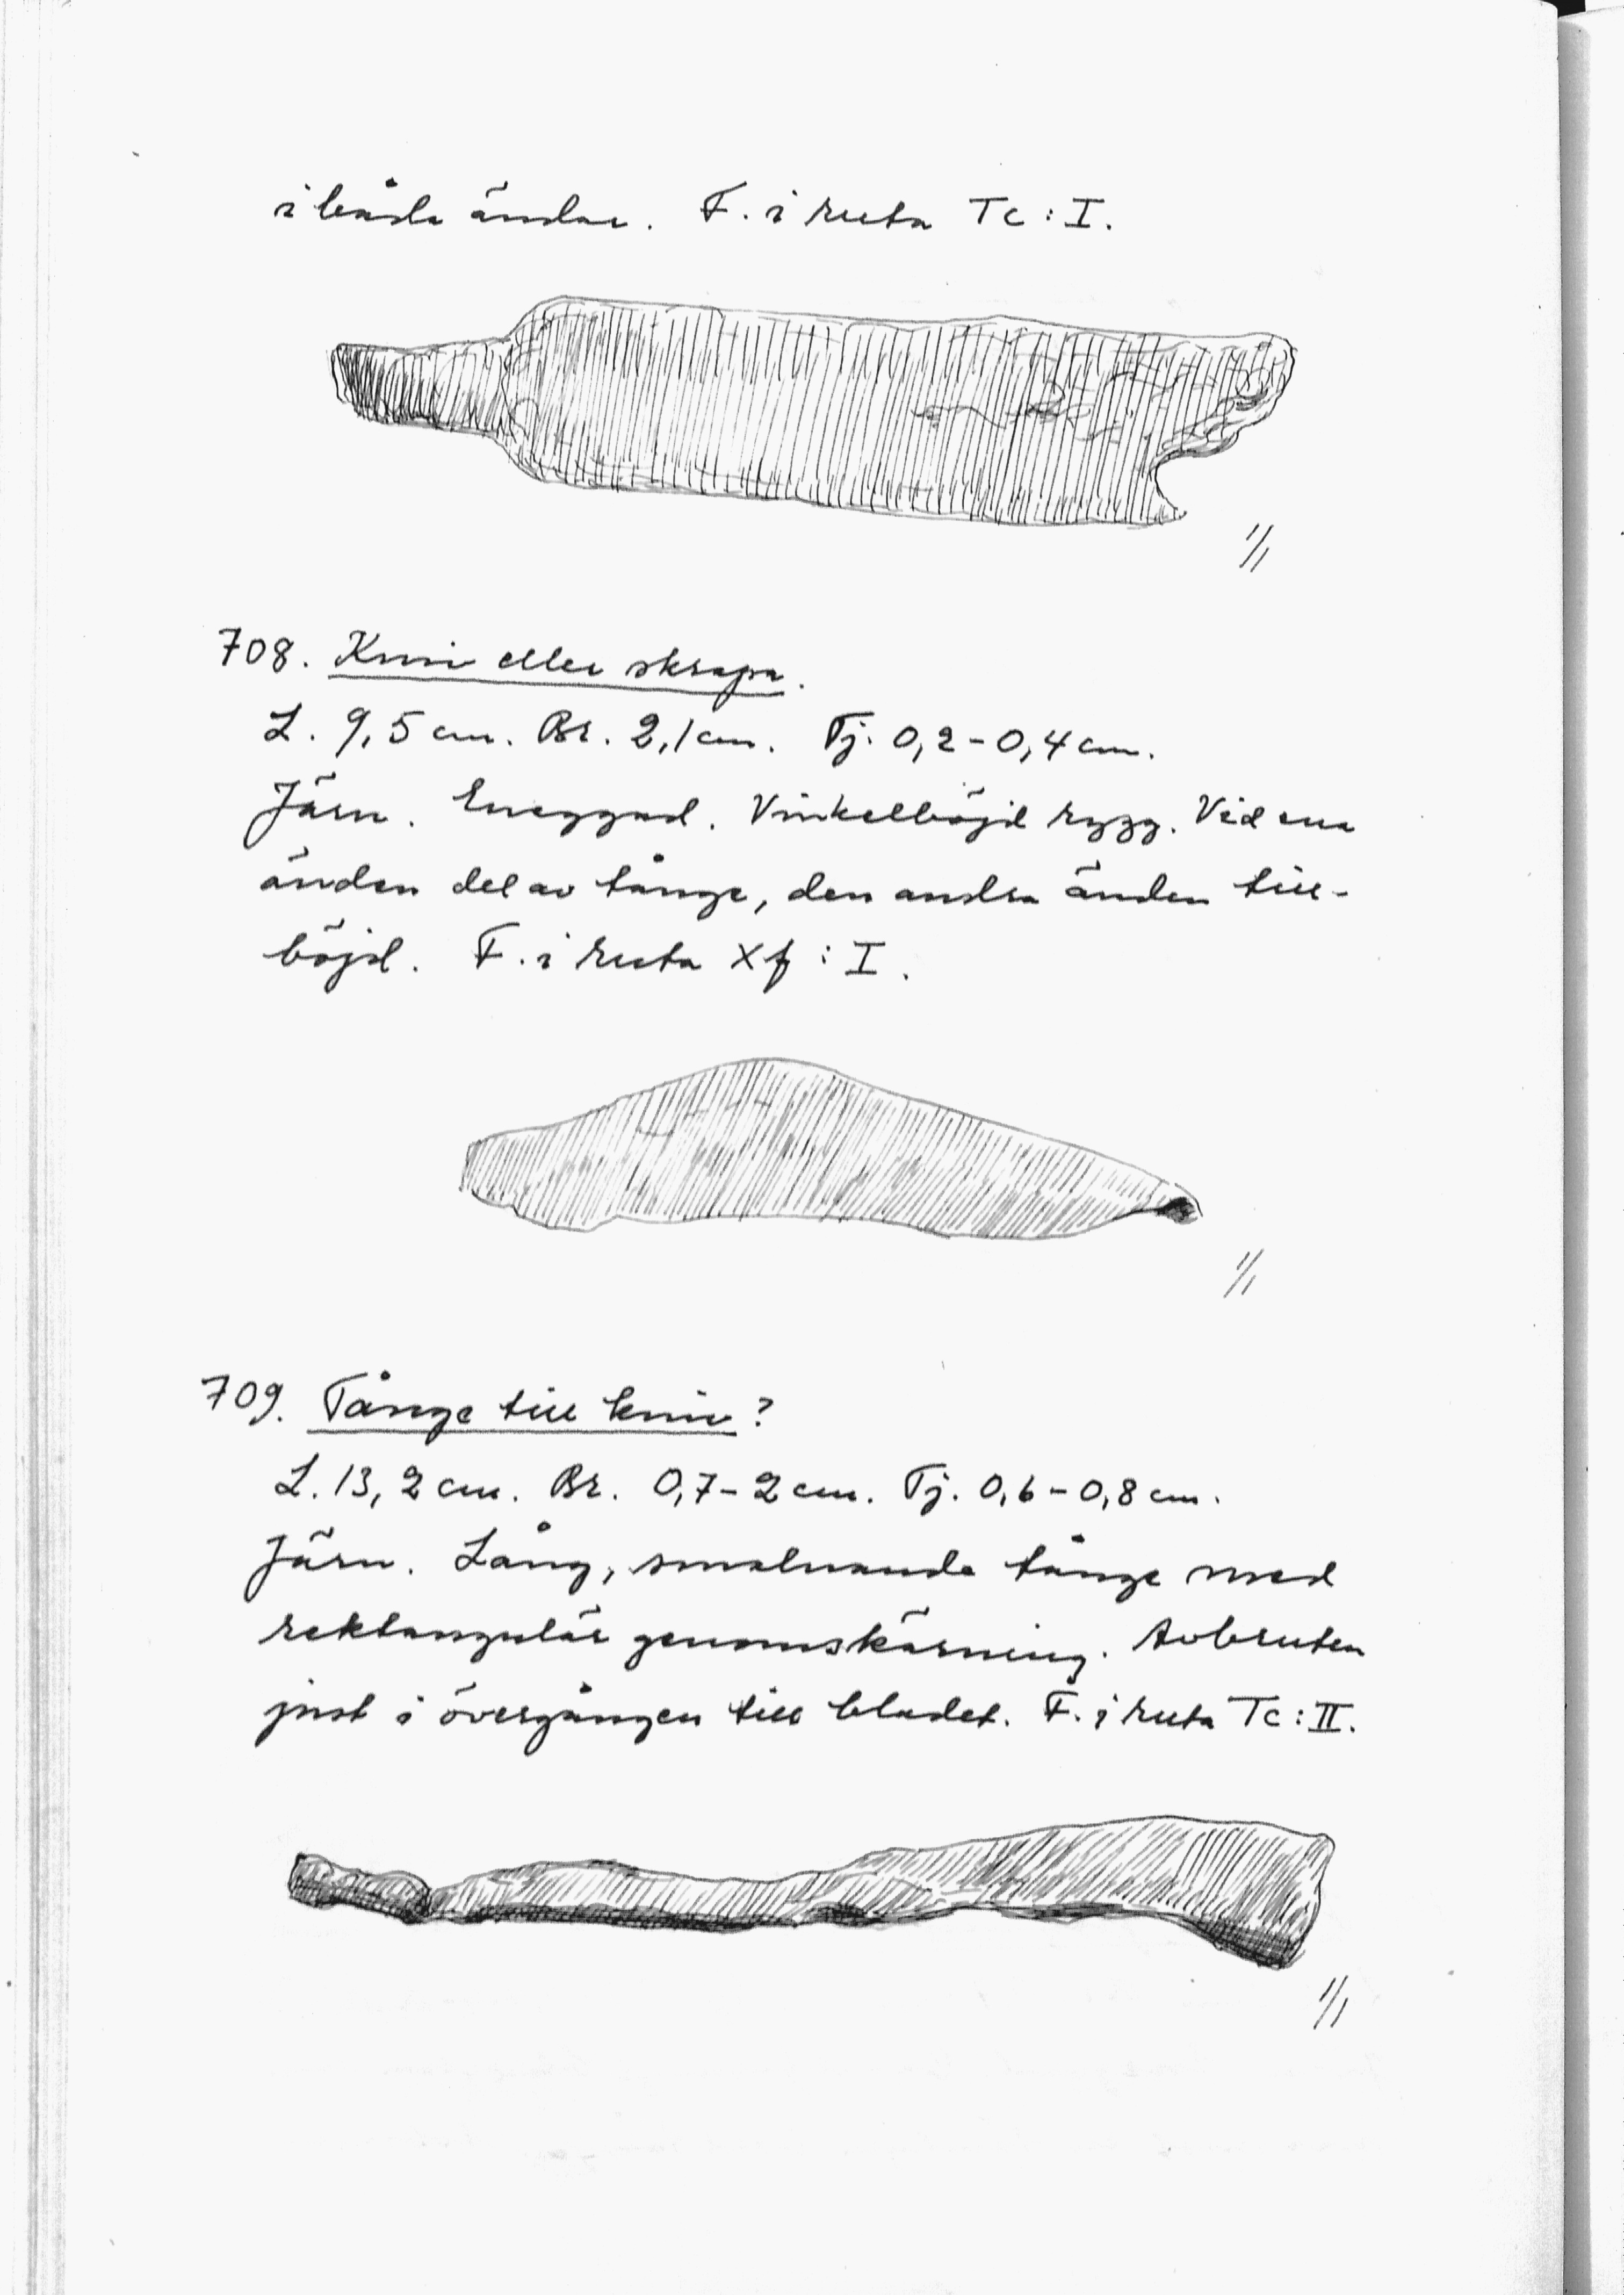 i båda ändar. F. i ruta Tc: I.
1/1
708. Kniv eller skrapa.
L. 9,5 cm. Br. 2,1 cm. Tj. 0,2-0,4 cm.
Järn. Eneggad. Vinkelböjd rygg. Vid ena
änden del av tånge, den andra änden till-
böjd. F. i ruta Xf: I.
1/1
709. Tånge till kniv?
L. 13,2 cm. Br. 0,7-2 cm. Tj. 0,6-0,8 cm.
Järn. Lång, smalnande tånge med
rektangulär genomskärning. Avbruten
just i övergången till bladet. F. i ruta Tc: II.
1/1